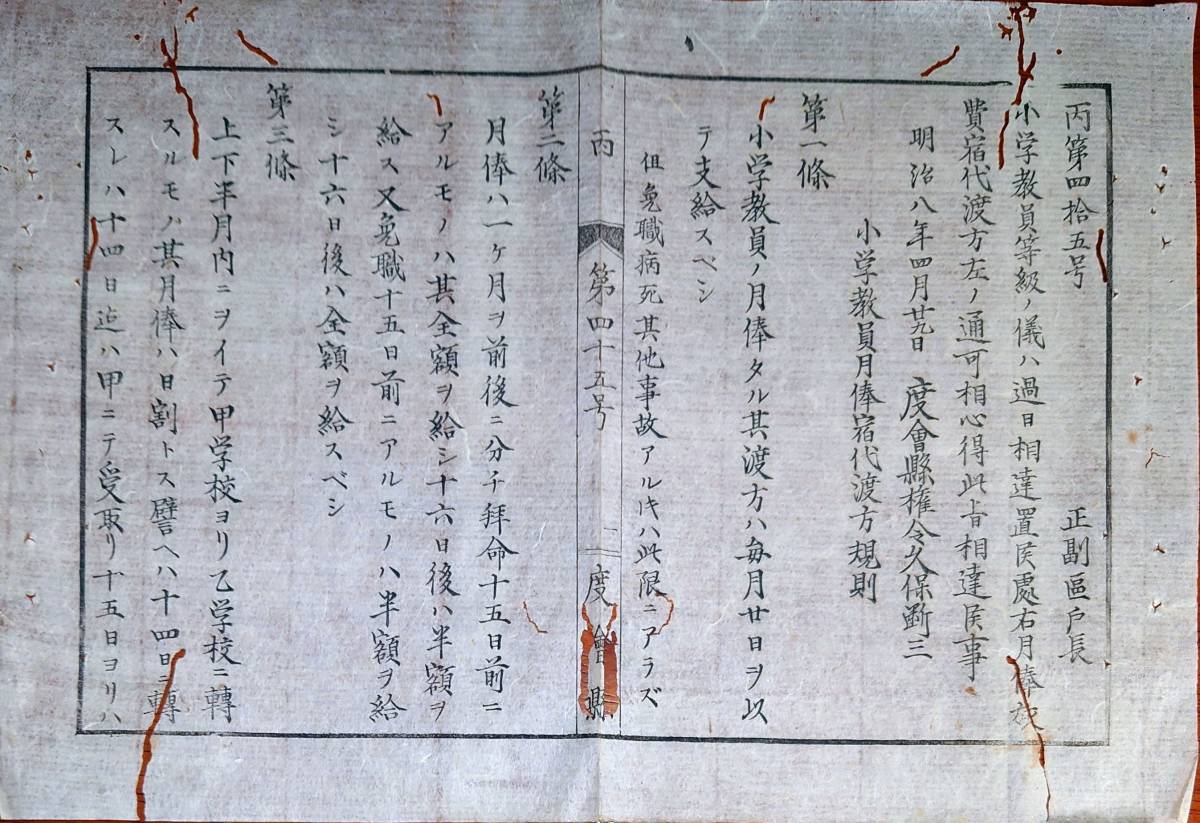 丙第四拾五号 正副區戸長
小学教員等級ノ儀ハ過日相達置候處右月俸旅
費宿代渡方左ノ通可相心得此旨相達候事
明治八年四月廿九日 度會縣権令久保断三
小学教員月俸宿代渡方規則
第一條
小学教員ノ月俸タル其渡方ハ毎月廿日ヲ以
テ支給スベシ
但免職病死其他事故アルキハ此限ニアラズ
丙 第四十五号 度會縣
第二條
月俸ハ一ケ月ヲ前後ニ分チ拜命十五日前ニ
アルモノハ其全額ヲ給シ十六日後ハ半額ヲ
給ス又免職十五日前ニアルモノハ半額ヲ給
シ十六日後ハ全額ヲ給スベシ
第三條
上下半月内ニヲイテ甲学校ヨリ乙学校ニ轉
スルモノ其月俸ハ日割トス譬ヘハ十四日ニ轉
スレハ十四日迠ハ甲ニテ受取リ十五日ヨリハ